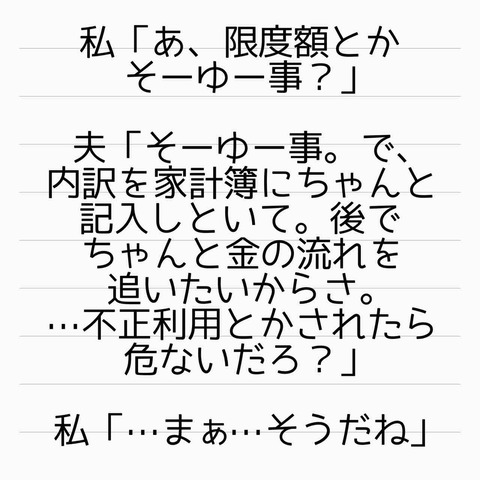 私「あ、限度額とか
そーゆー事？」
夫「そーゆー事。で、
内訳を家計簿にちゃんと
記入しといて。後で
ちゃんと金の流れを
追いたいからさ。
…不正利用とかされたら
危ないだろ？」
私「…まぁ…そうだね」